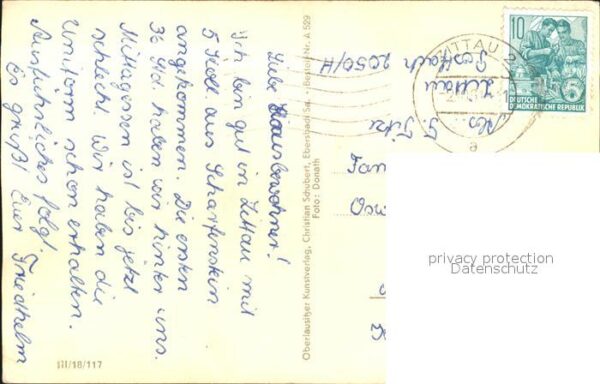 Liebe Hausbewohner!
Ich bin gut in Zittau mit
5 Koll. aus Scharfenstein
angekommen. Die ersten
36 Std haben wir hinter uns.
Mittagessen ist bis jetzt
schlecht. Wir haben die
Uniform schon erhalten.
Ausführliches folgt.
Es grüßt Euer Friedhelm
III/18/117
Oberlausitzer Kunstverlag, Christian Schubert, Ebersbach Sa. · Bestell-Nr. A 529
Foto: Donath
Abs.
Zittau
Postfach 2050/H
ZITTAU 2
a
10
DEUTSCHE
DEMOKRATISCHE REPUBLIK
Fam
privacy protection
Datenschutz